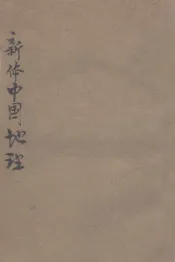 新体中国地理